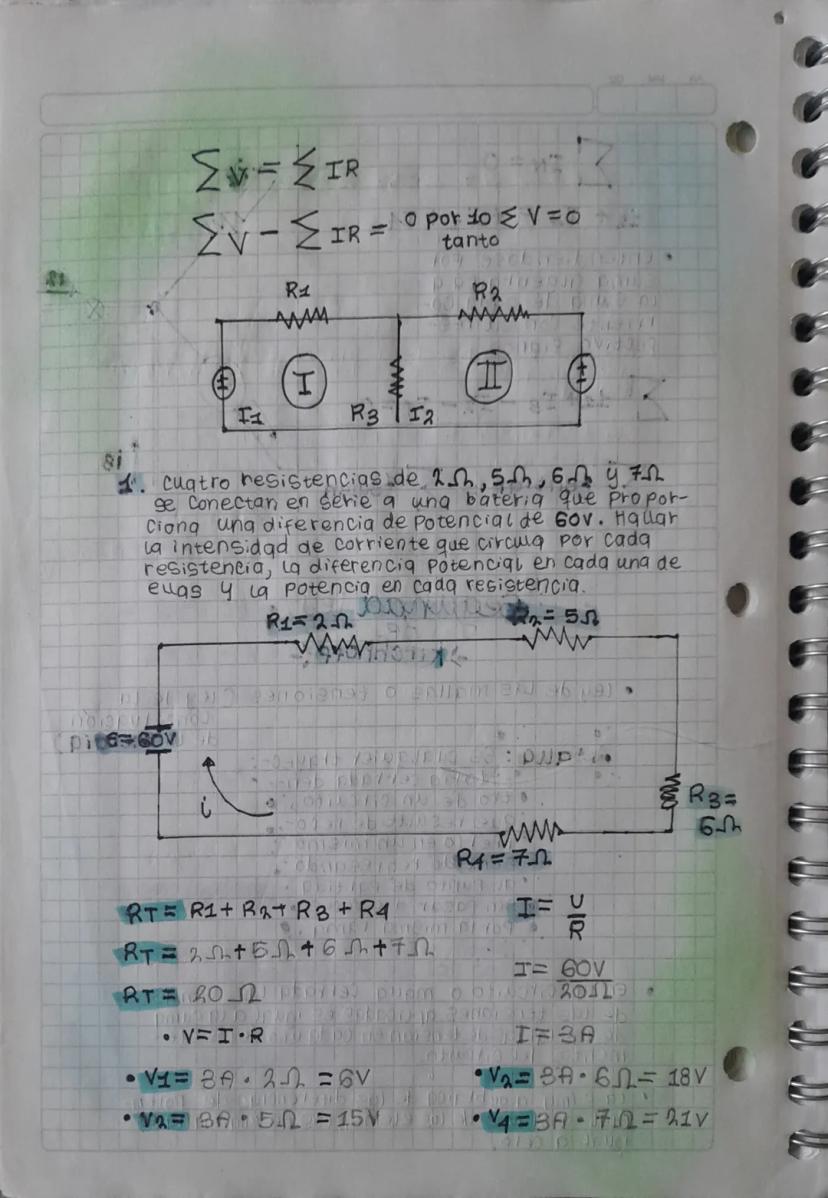 ∑ V = ∑ IR
∑ V − ∑ IR = 0 por lo ∑ V = 0
tanto
R1
R2
I
II
I1
R3
I2
1. Cuatro resistencias de 2Ω, 5Ω, 6Ω y 7Ω
se conectan en serie a una bateria que propor-
ciona una diferencia de potencial de 60V. Hallar
la intensidad de corriente que circula por cada
resistencia, la diferencia potencial en cada una de
ellas y la potencia en cada resistencia.
R1= 2Ω
R2= 5Ω
6=60V
i
R3=
6Ω
R4=7Ω
RT= R1+ R2+ R3 + R4
RT= 2Ω+5Ω+6Ω+7Ω
RT= 20Ω
• V= I·R
I= U
R
I= 60V
20Ω
I= 3A
• V1= 3A · 2Ω = 6V
• V2= 3A · 6Ω= 18V
• V2= 3A · 5Ω = 15V
• V4= 3A · 7Ω= 21V